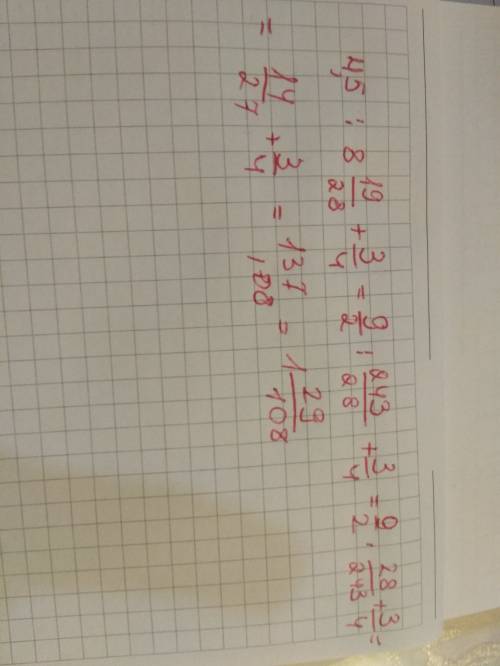 4,5 : 8 19/28 + 3/4 = 9/2 : 243/28 + 3/4 = 9/2 · 28/243 + 3/4 =
= 14/27 + 3/4 = 137/108 = 1 29/108